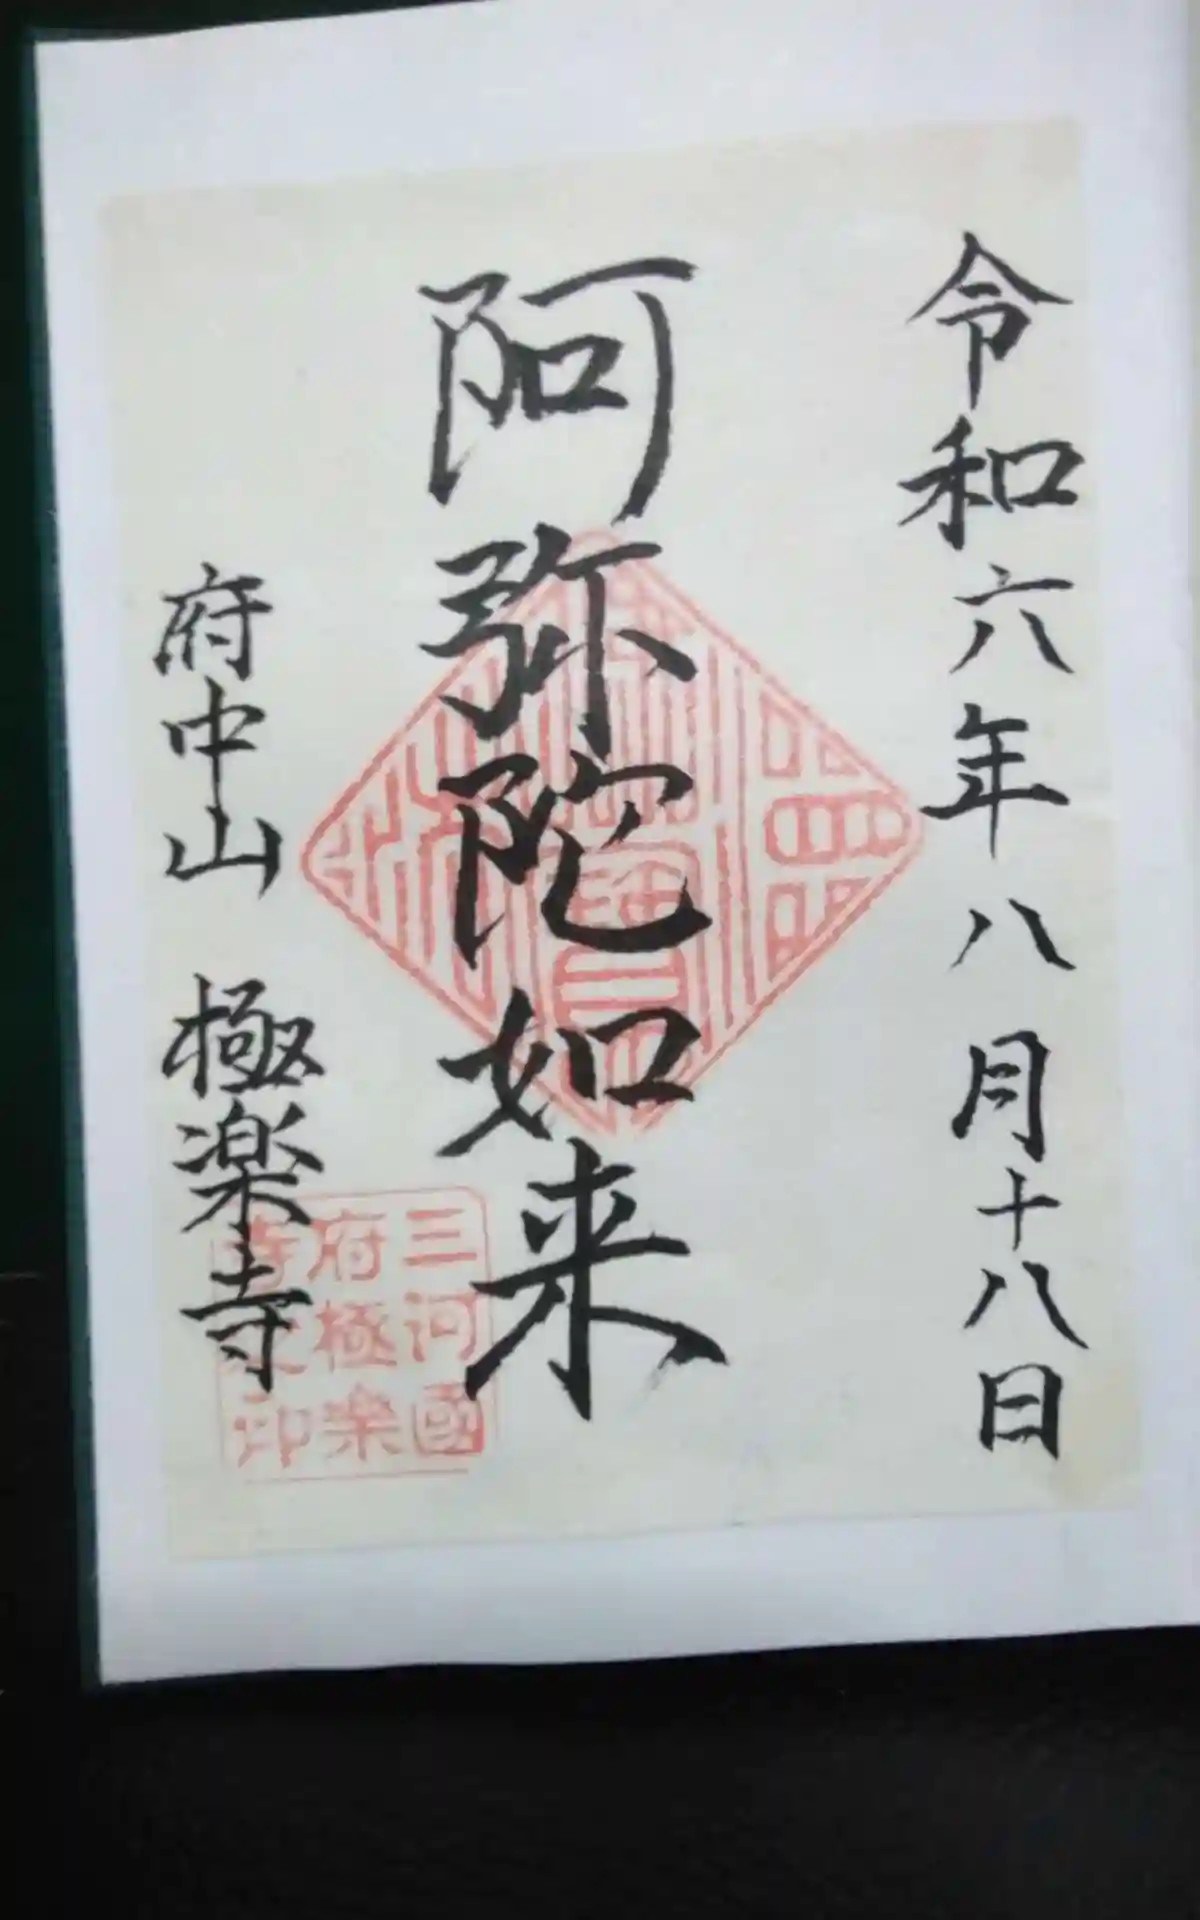 令和六年八月十八日
阿弥陀如来
府中山 極楽寺
三河國
府極樂
寺之印